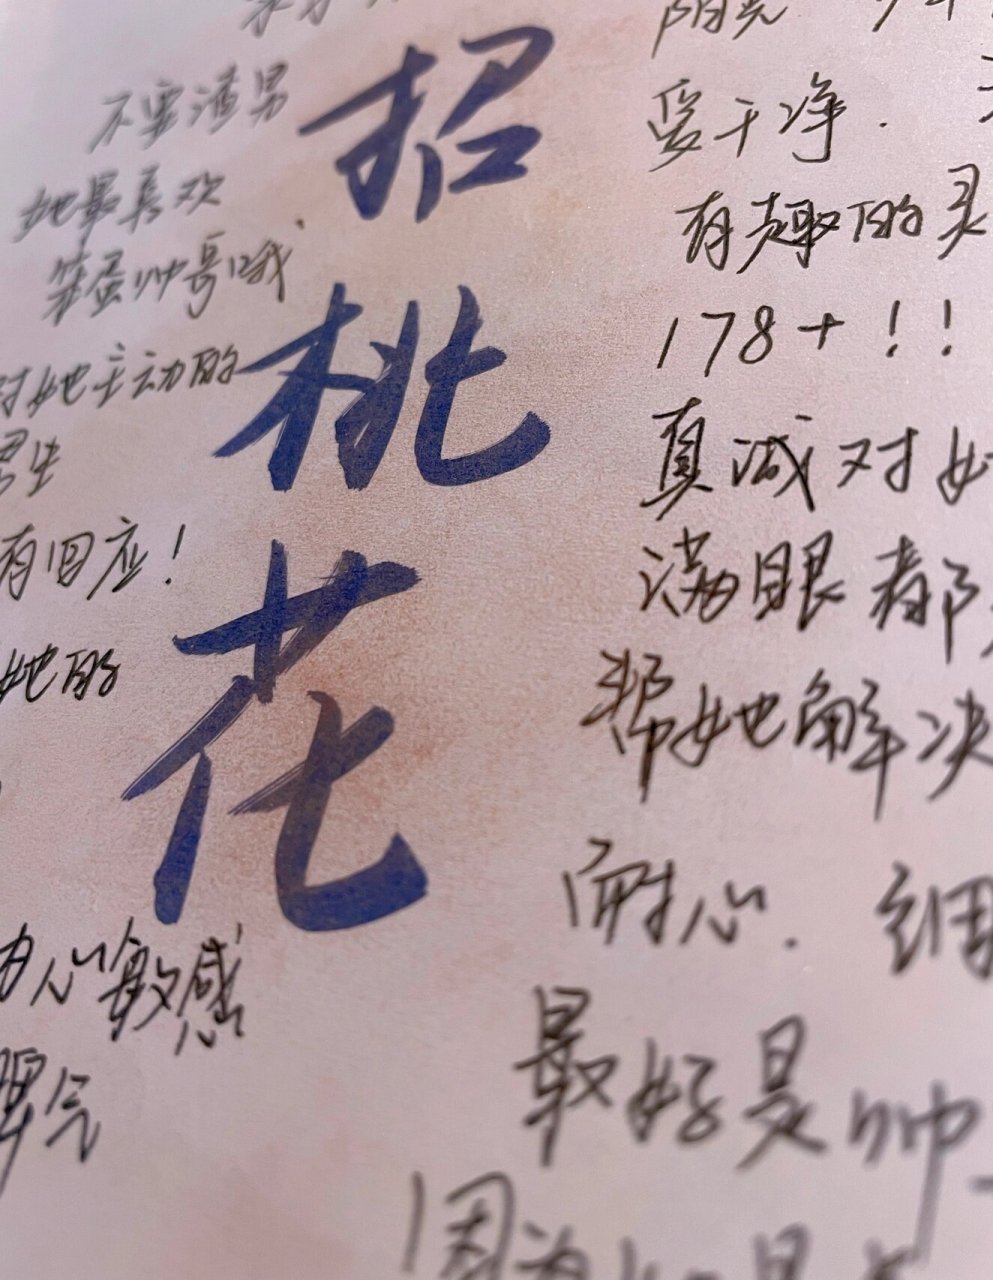 招桃花
不要渣男
她最喜欢
笨蛋帅哥哦
对她主动的
男生
有回应！
她的
内心敏感
脾气
阳光 少年
爱干净．
有趣的灵
178+！！
真诚对她
满眼都
帮她解决
耐心．细
最好是帅
因为